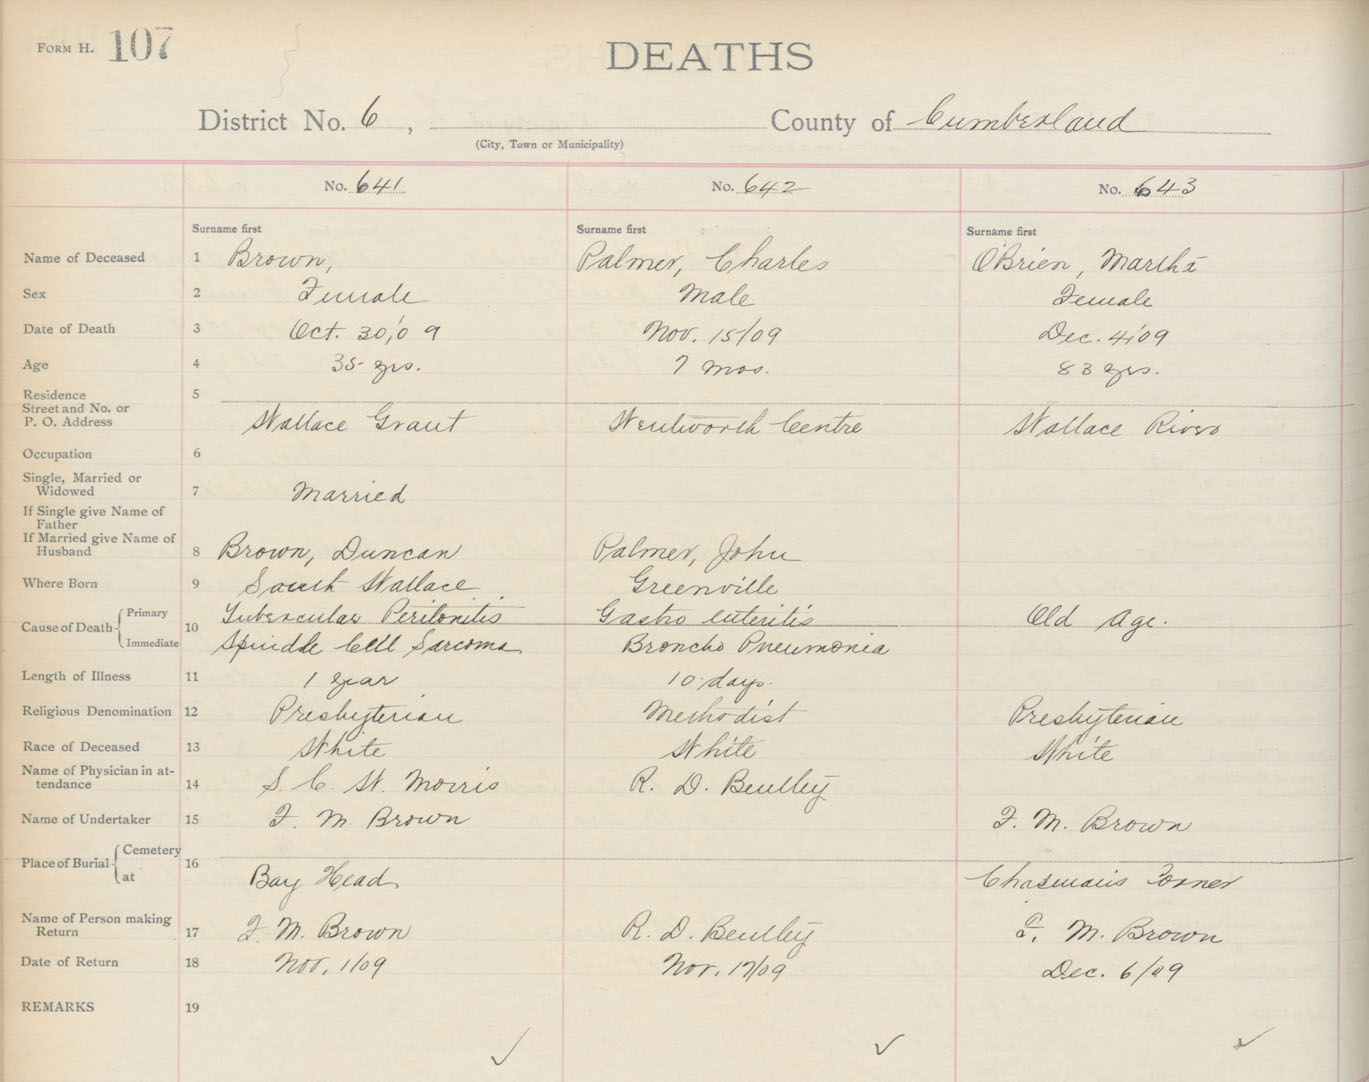 FORM H. 107
DEATHS
District No. 6, County of Cumberland
(City, Town or Municipality)
No. 641 No. 642 No. 643
Surname first Surname first Surname first
Name of Deceased 1 Brown, Palmer, Charles O'Brien, Martha
Sex 2 Female Male Female
Date of Death 3 Oct. 30,'09 Nov. 15/09 Dec. 4'09
Age 4 35 yrs. 7 mos. 83 yrs.
Residence 5
Street and No. or
P. O. Address Wallace Grant Wentworth Centre Wallace River
Occupation 6
Single, Married or
Widowed 7 Married
If Single give Name of
Father
If Married give Name of
Husband 8 Brown, Duncan Palmer, John
Where Born 9 South Wallace Greenville
Cause of Death 10 Primary Tubercular Peritonitis Gastro enteritis Old Age.
Immediate Spindle Cell Sarcoma Broncho Pneumonia
Length of Illness 11 1 year 10 days.
Religious Denomination 12 Presbyterian Methodist Presbyterian
Race of Deceased 13 White White White
Name of Physician in at-
tendance 14 S. C. W. Morris R. D. Bentley
Name of Undertaker 15 F. M. Brown F. M. Brown
Place of Burial 16 Cemetery
at Bay Head Chasman's Corner
Name of Person making
Return 17 F. M. Brown R. D. Bentley F. M. Brown
Date of Return 18 Nov. 1/09 Nov. 17/09 Dec. 6/09
REMARKS 19